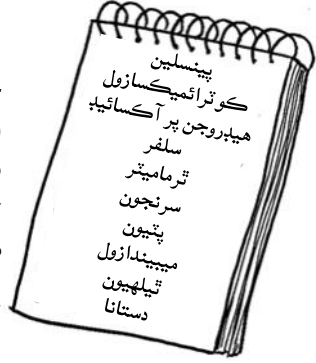 پينسلين
ڪو ٽرائميڪسازول
هيڊروجن پر آڪسائيڊ
سلفر
ٿرماميٽر
سرنجون
پٽيون
ميبيندازول
ٿيلهيون
دستانا